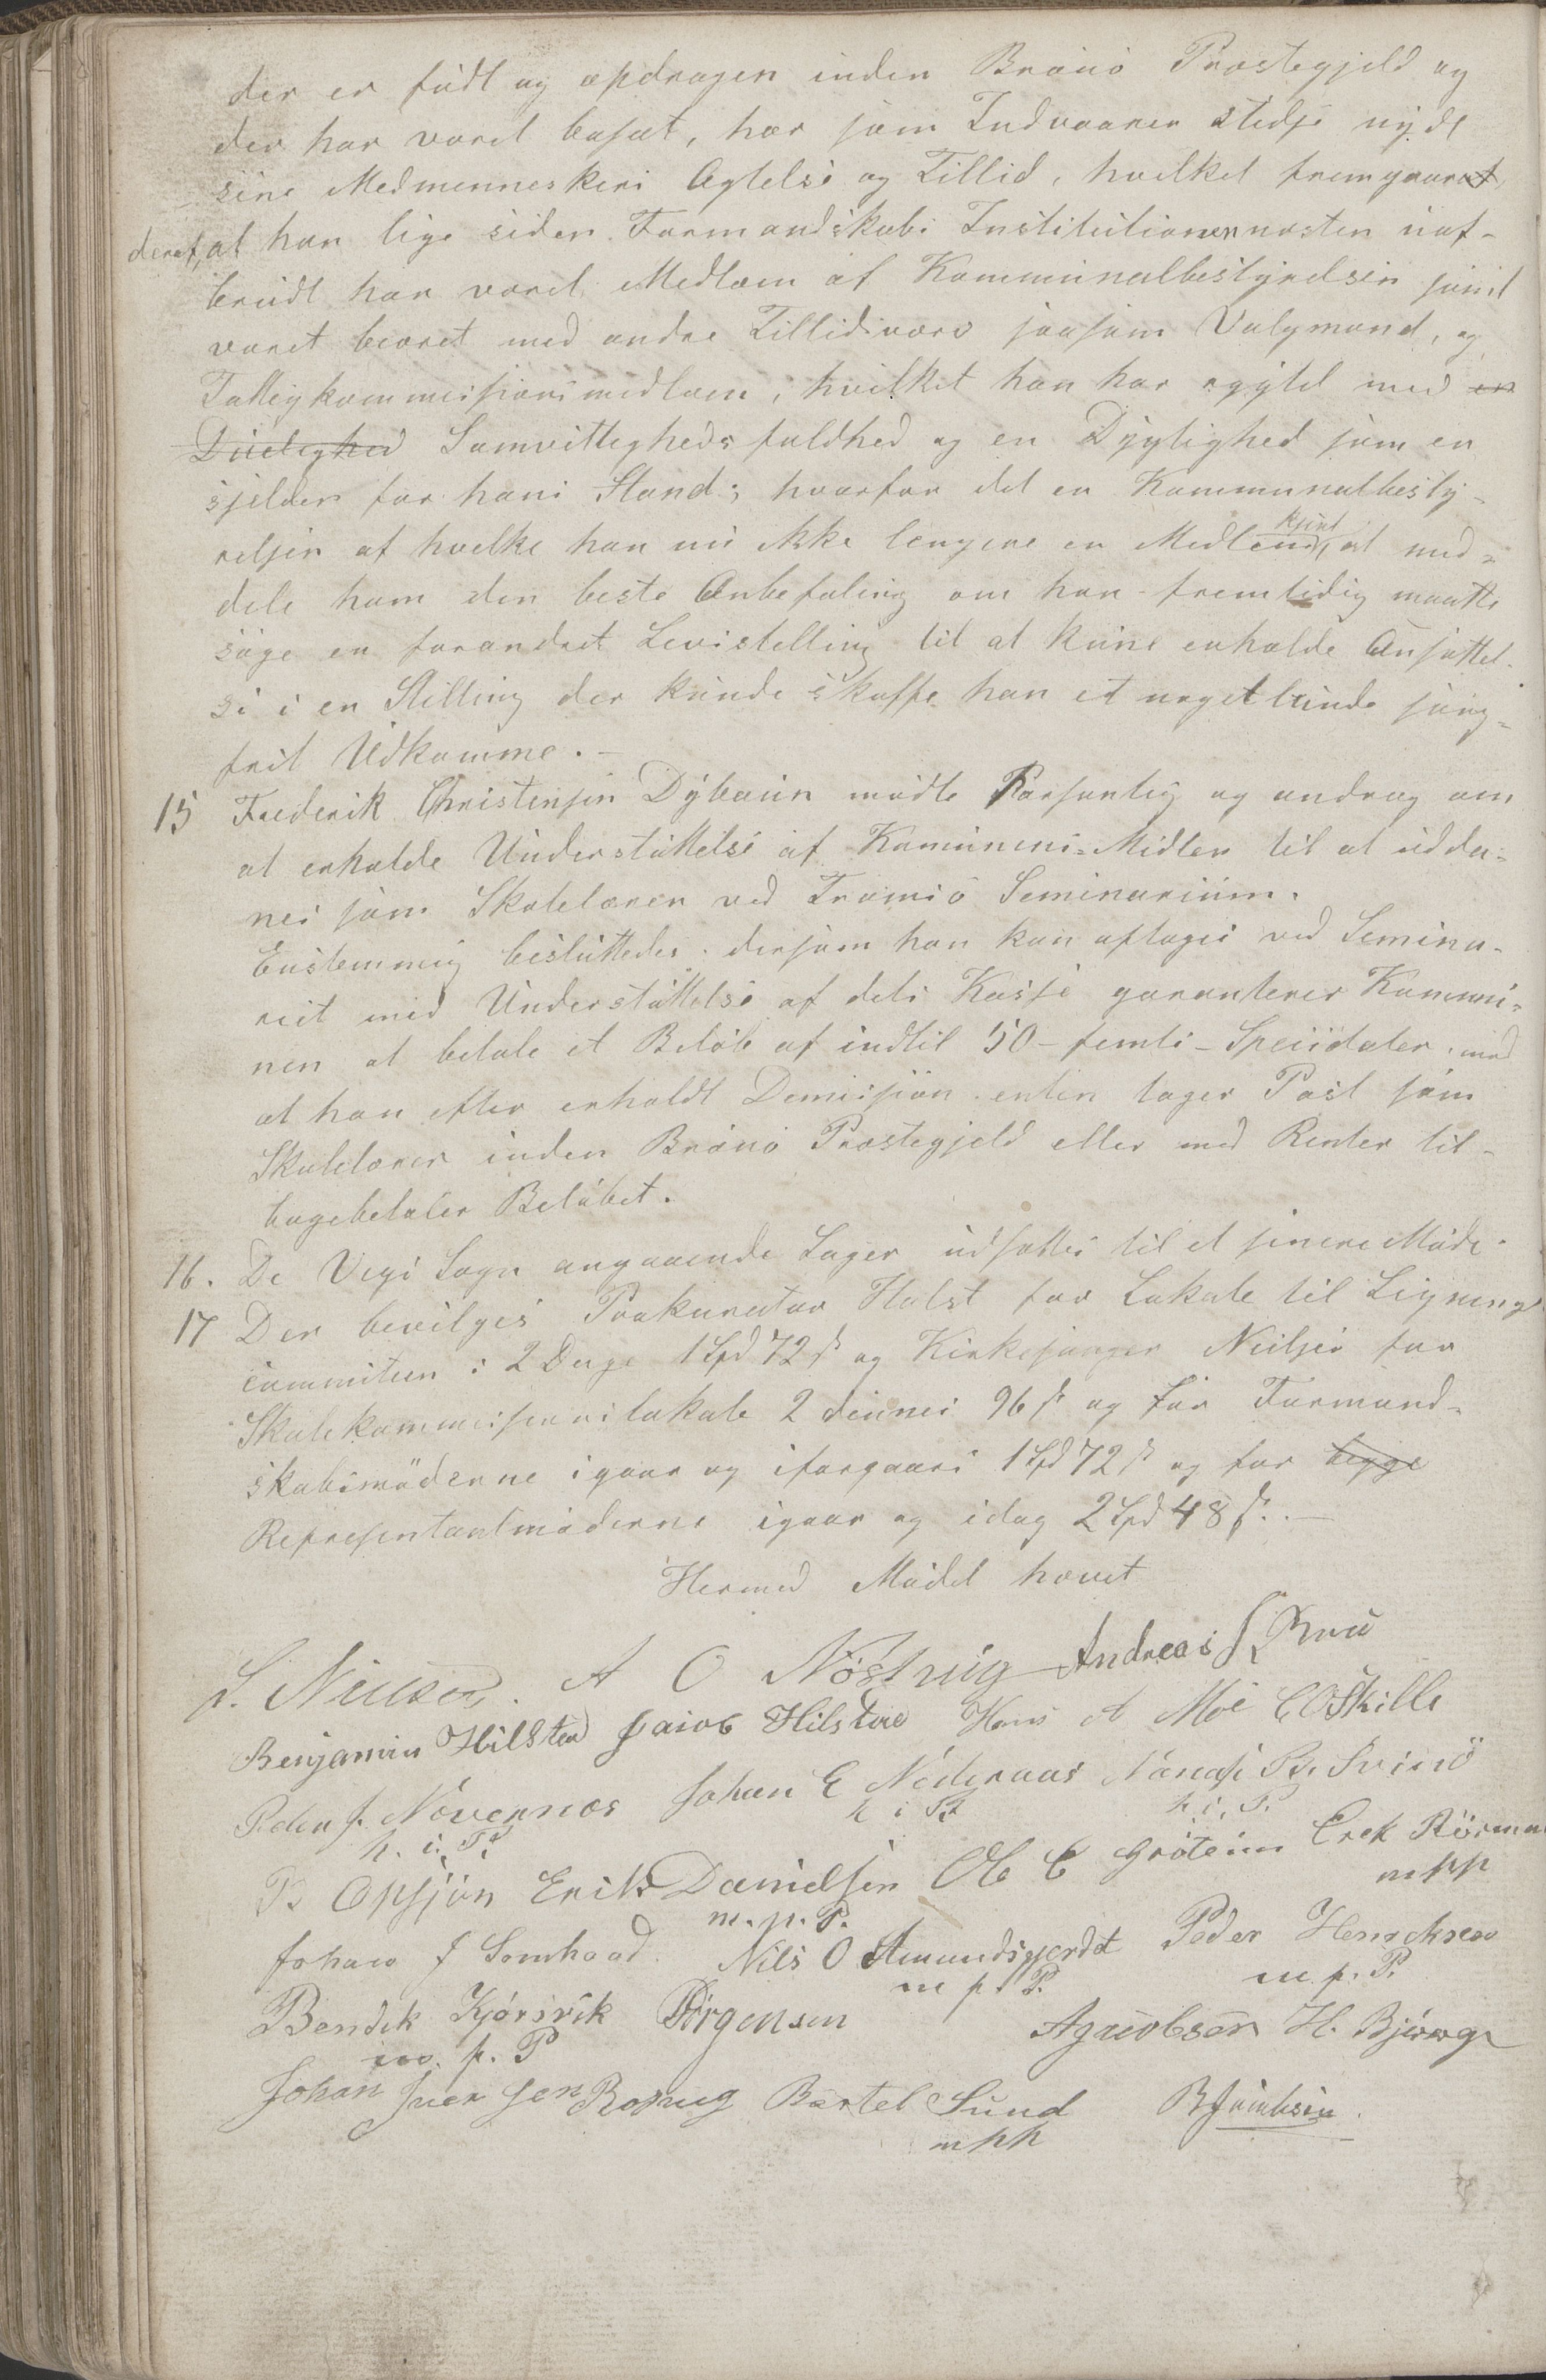 der er født og opdragen inden Brønø Præstegjeld og
der har været bosat, har som Indvaaner stedse nydt
sine Medmenneskers Agtelse og Tillid, hvilket fremgaar at
deraf, at han lige siden Formandskabs Institutionen næsten uaf-
brudt har været Medlem af Kommunalbestyrelsen samt
været beæret med andre Tillidsværv saasom Valgmand, og
Fattigkommissionsmedlem, hvilket han har røgtet med en
Duelighed Samvittighedsfuldhed og en Dygtighed som er
sjelden for hans Stand; hvorfor det er Kommunalbesty-
relsen af hvilke han nu ikke længere er Medlem, kjært at med-
dele ham den beste Anbefaling om han fremtidig maatte
søge en forandret Levestilling til at kune erholde Ansættel-
se i en Stilling der kunde skaffe han et nogetlunde sorg-
frit Udkomme. -
15 Frederik Christensen Dybaun mødte Personlig og androg om
at erholde Understøttelse af Kommunens Midler til at uddan-
nes som Skolelærer ved Tromsø Seminarium.
Enstemmig besluttedes: dersom han kan optages ved Semina-
riet med Understøttelse af dets Kasse garanterer Kommu-
nen at betale et Beløb af indtil 50 - femti - Speciedaler, mod
at han efter erholdt Demission enten tager Post som
Skolelærer inden Brønø Præstegjeld eller med Renter til-
bagebetaler Beløbet.
16. De Vegø Sogn angaaende Sager udsættes til et senere Møde.
17 Der bevilges Prokurator Holst for Lokale til Lignings
commiteen i 2 Dage 1 Spd 72 ß og Kirkesanger Neilsen for
Skolekommissions lokale 2 dinner 96 ß og for Formand-
skabsmøderne igaar og iforgaars 1 Spd 72 ß og for begge
Representantmøderne igaar og idag 2 Spd 48 ß. -
Hermed Mødet hævet
A O Nøstvig Andreas
Benjamin Hilstad Jacob Hilstad Hans A Moe C O Skille
Peder J. Nøvernæs Johan E Nederaas
h. i. P. h i P h. i. P.
P Opsjøn Erik Danielsen Ole C Grøteim
m. p. P. mpp
Johan J Somhaad Nils O Amundsgjerdet Peder Henrichsen
m p P. m. p. P.
Bendik Jørgensen AJacobsen H.
m. p. P
Johan Iversen Bartel Sund BJacobsen
mpp